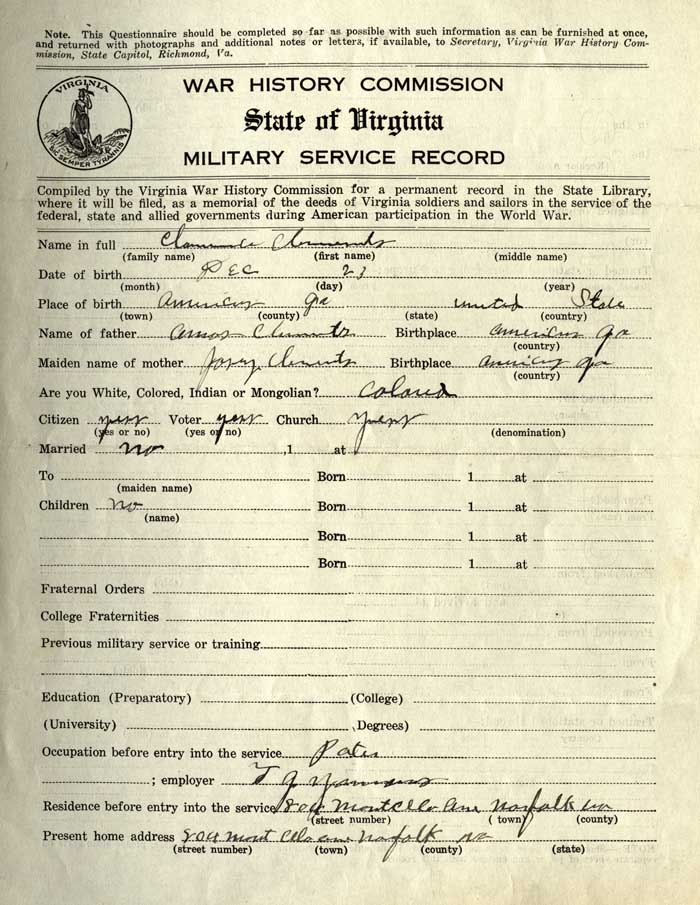 Note. This Questionnaire should be completed so far as possible with such information as can be furnished at once,
and returned with photographs and additional notes or letters, if available, to Secretary, Virginia War History Com-
mission, State Capitol, Richmond, Va.
VIRGINIA
SIC SEMPER TYRANNIS
WAR HISTORY COMMISSION
State of Virginia
MILITARY SERVICE RECORD
Compiled by the Virginia War History Commission for a permanent record in the State Library,
where it will be filed, as a memorial of the deeds of Virginia soldiers and sailors in the service of the
federal, state and allied governments during American participation in the World War.
Name in full
(family name) (first name) (middle name)
Date of birth Dec 23
(month) (day) (year)
Place of birth Americus ga united State
(town) (county) (state) (country)
Name of father amos Clements Birthplace americus ga
(country)
Maiden name of mother Clements Birthplace americus ga
(country)
Are you White, Colored, Indian or Mongolian? Colored
Citizen yess Voter yess Church
(yes or no) (yes or no) (denomination)
Married no ,1 at
To Born 1 at
(maiden name)
Children no Born 1 at
(name)
Born 1 at
Born 1 at
Fraternal Orders
College Fraternities
Previous military service or training
Education (Preparatory) (College)
(University) Degrees)
Occupation before entry into the service
; employer T
Residence before entry into the service 804 montcelo ave norfolk va
(street number) (town) (county)
Present home address 804 mont celo ave norfolk va
(street number) (town) (county) (state)